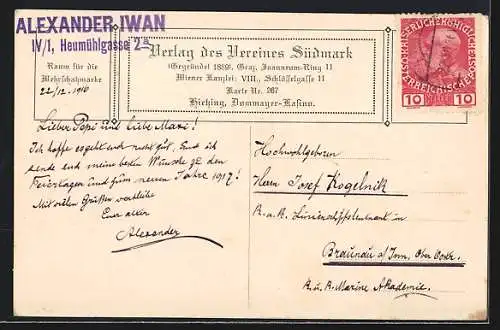 ALEXANDER IWAN
IV/1, Heumühlgasse 2a
Raum für die
Wehrschatzmarke
22/12. 1916
Verlag des Vereines Südmark
(Gegründet 1889). Graz, Joanneum-Ring 11
Wiener Kanzlei: VIII., Schlösselgasse 11
Karte Nr. 267
Hietzing, Dommayer-Kasino.
10 HELLER 10
Lieber Pepi und liebe Maxi!
Ich hoffe es geht euch recht gut. Und ich
sende euch meine besten Wünsche zu den
Feiertagen und zum neuen Jahre 1917!
Mit vielen Grüßen verbleibe
Euer alter
Alexander
Hochwohlgeboren
Herrn Josef Kogelnik
k. u. k. Linienschiffsleutnant in
Braunau a/Inn, Ober Oestr.
K. u. k. Marine Akademie.